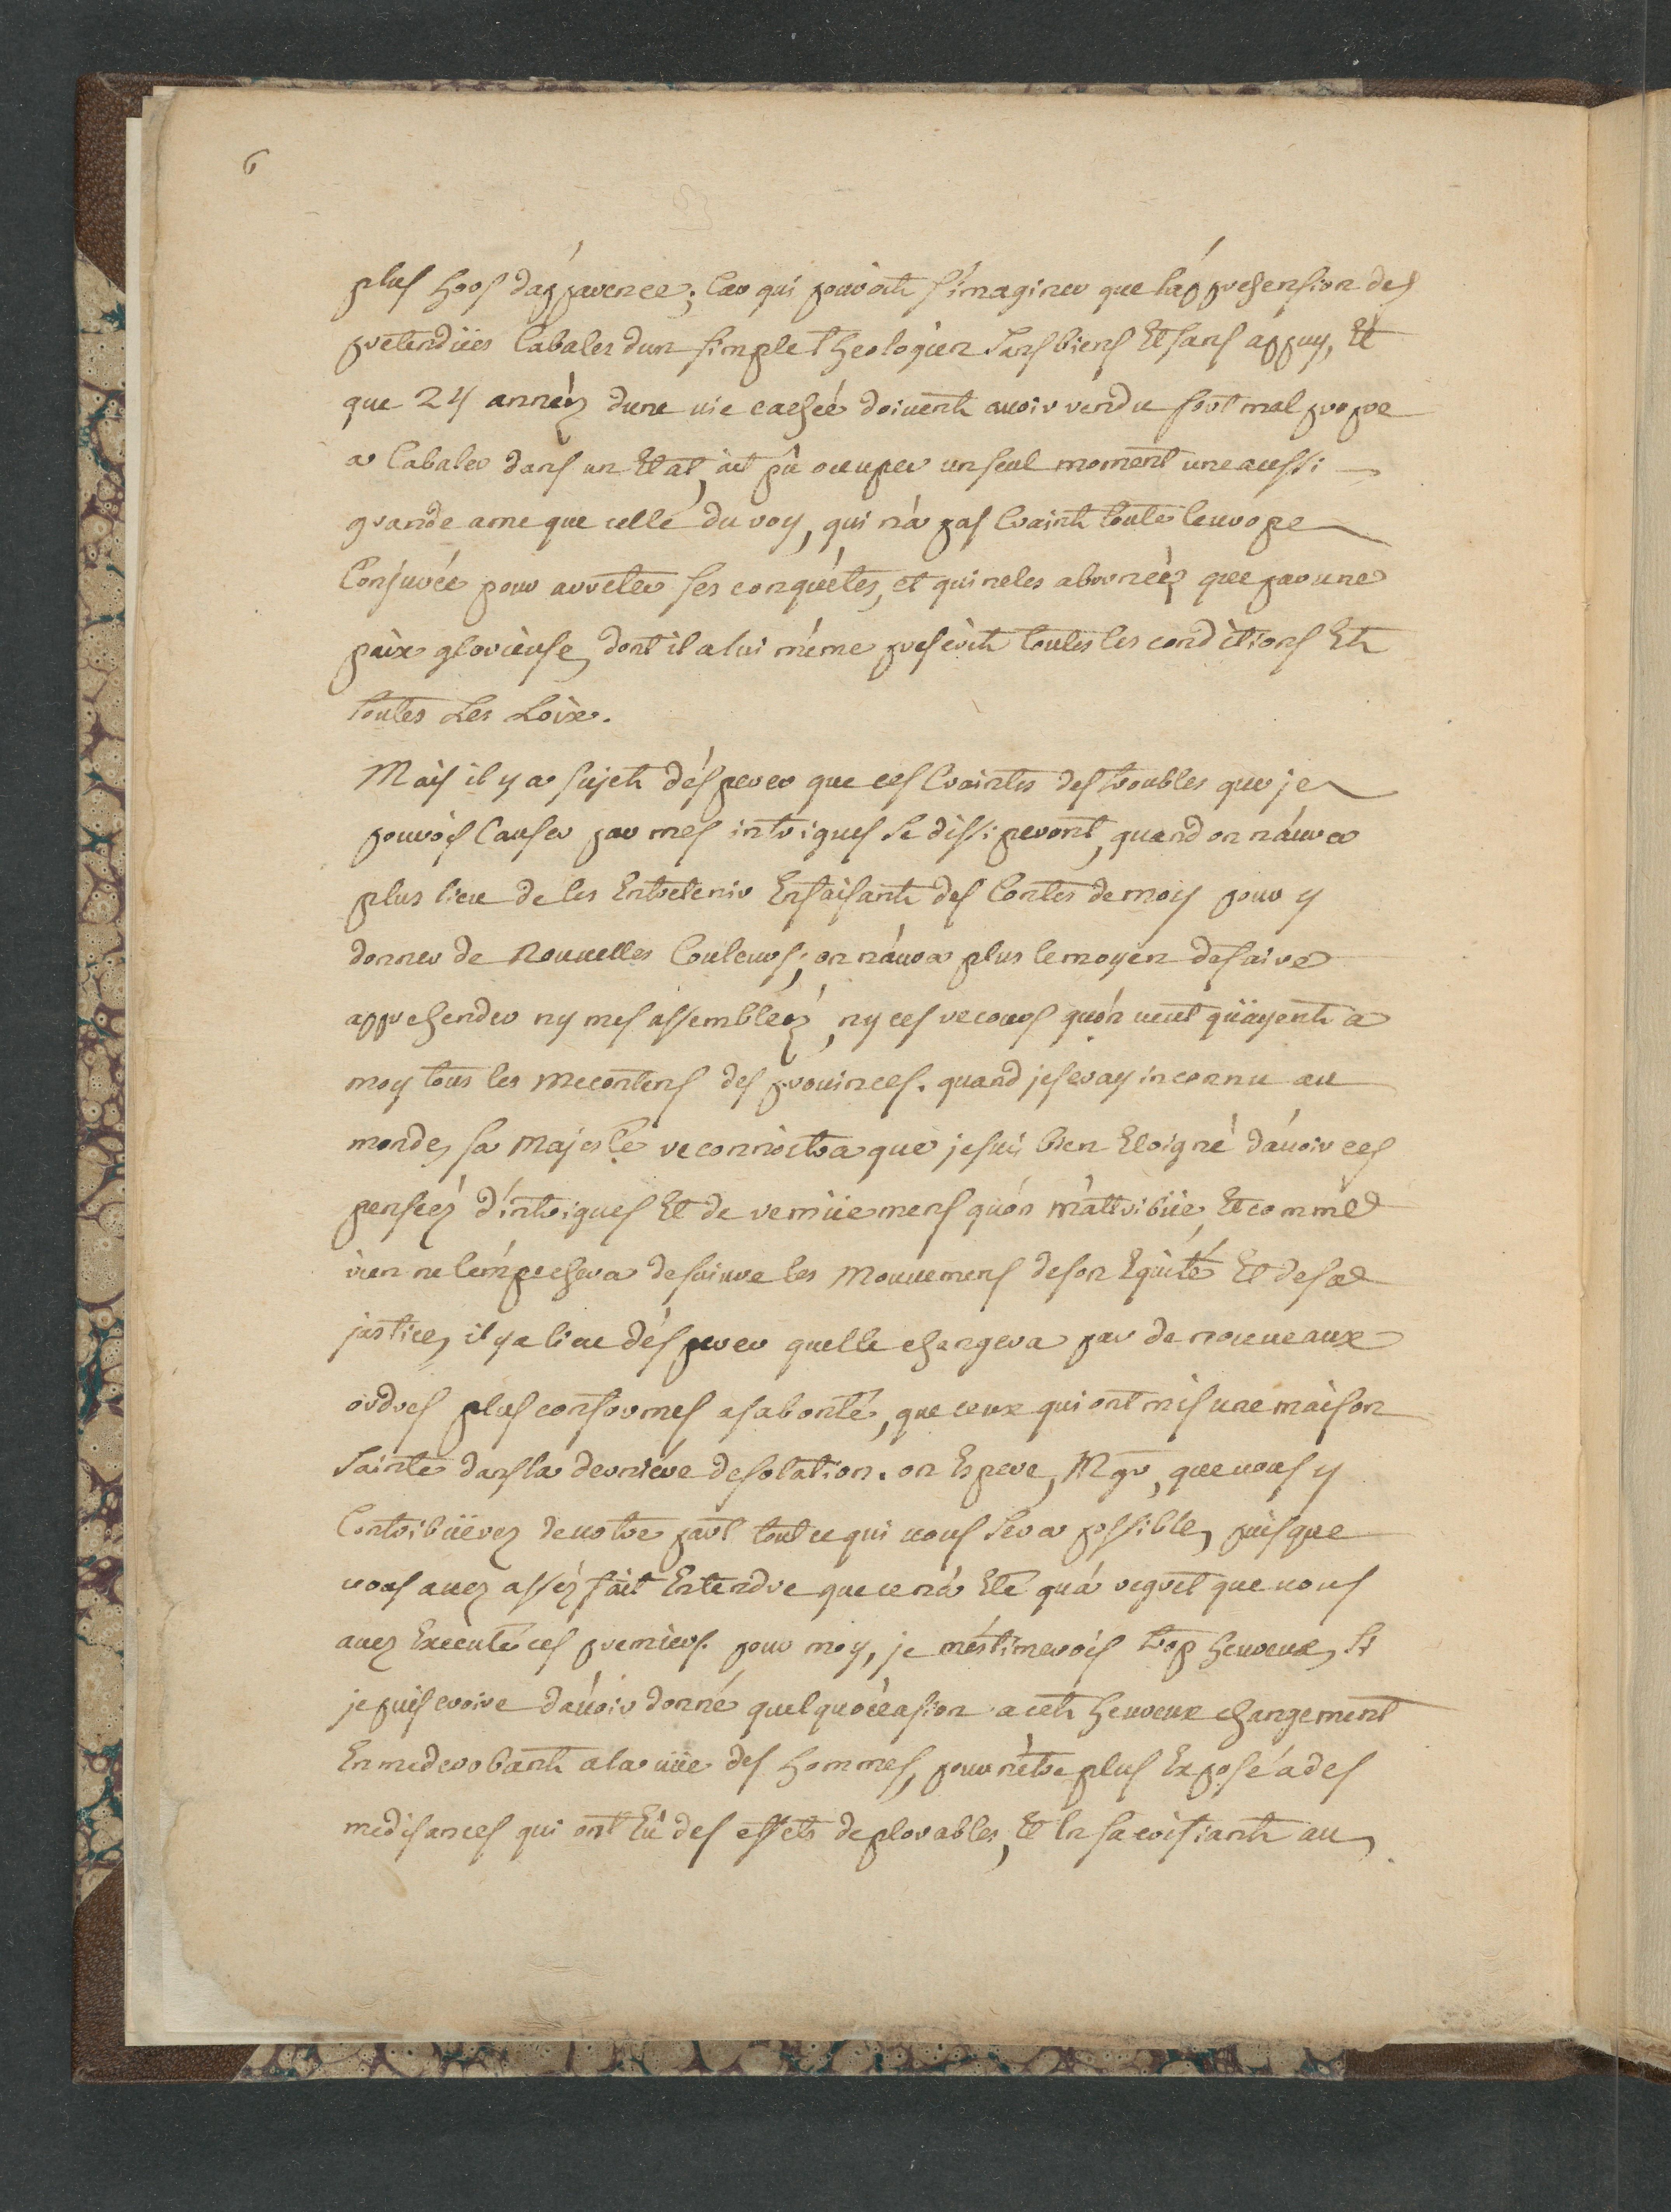 6
plus hors d'apparence; Car qui pouroit s'imaginer que l'apprehension des
pretendües Cabales dun simple Theologien Sans biens Et sans appuy, Et
que 24 années dune vie cachée doivent avoir rendu fort mal propre
a Cabaler dans un Etat, ait pû ocuper un seul moment une aussi
grande ame que celle du roy, qui n'a pas Craint toute l'europe
Conjurée pour arreter ses conquétes, et qui ne les a bornées que par une
paix glorieuse, dont il a lui méme prescrit toutes les conditions Et
toutes Les Loix.
Mais il y a sujet d'ésperer que ces Craintes des troubles que je
pourois Causer par mes intrigues Se dissiperont, quand on n'aura
plus lieu de les Entretenir En faisant des Contes de moy pour y
donner de Nouvelles Couleurs; on n'aura plus le moyen de faire
apprehender ny mes assemblées, ny ces recours qu'on veut qu'ayent a
moy tous les Mecontens des provinces. quand je seray inconnu au
monde, sa Majesté reconnoitra que je suis bien Eloigné d'avoir ces
pensées d'intrigues Et de remüemens qu'on m'attribüe, Et comme
rien ne l'empechera de suivre les Mouvemens de son Equité Et de sa
justice, il y a lieu d'ésperer quelle changera par de nouveaux
ordres plus conformes a sa bonté, que ceux qui ont mis une maison
Sainte dans la derniére desolation. on Espere, Mgr, que vous y
Contribüerez de votre part tout ce qui vous Sera possible, puisque
vous avez assez fait Entendre que ce n'a Eté qu'a regret que vous
avez Executé ces premiers. pour moy, je m'éstimerois trop heureux, Si
je puis croire d'avoir donné quelqu'ocasion a cet heureux changement
En me derobant a la vüe des hommes, pour n'étre plus Exposé a des
medisances qui ont Eû des effets deplorables, Et En sacrifiant au